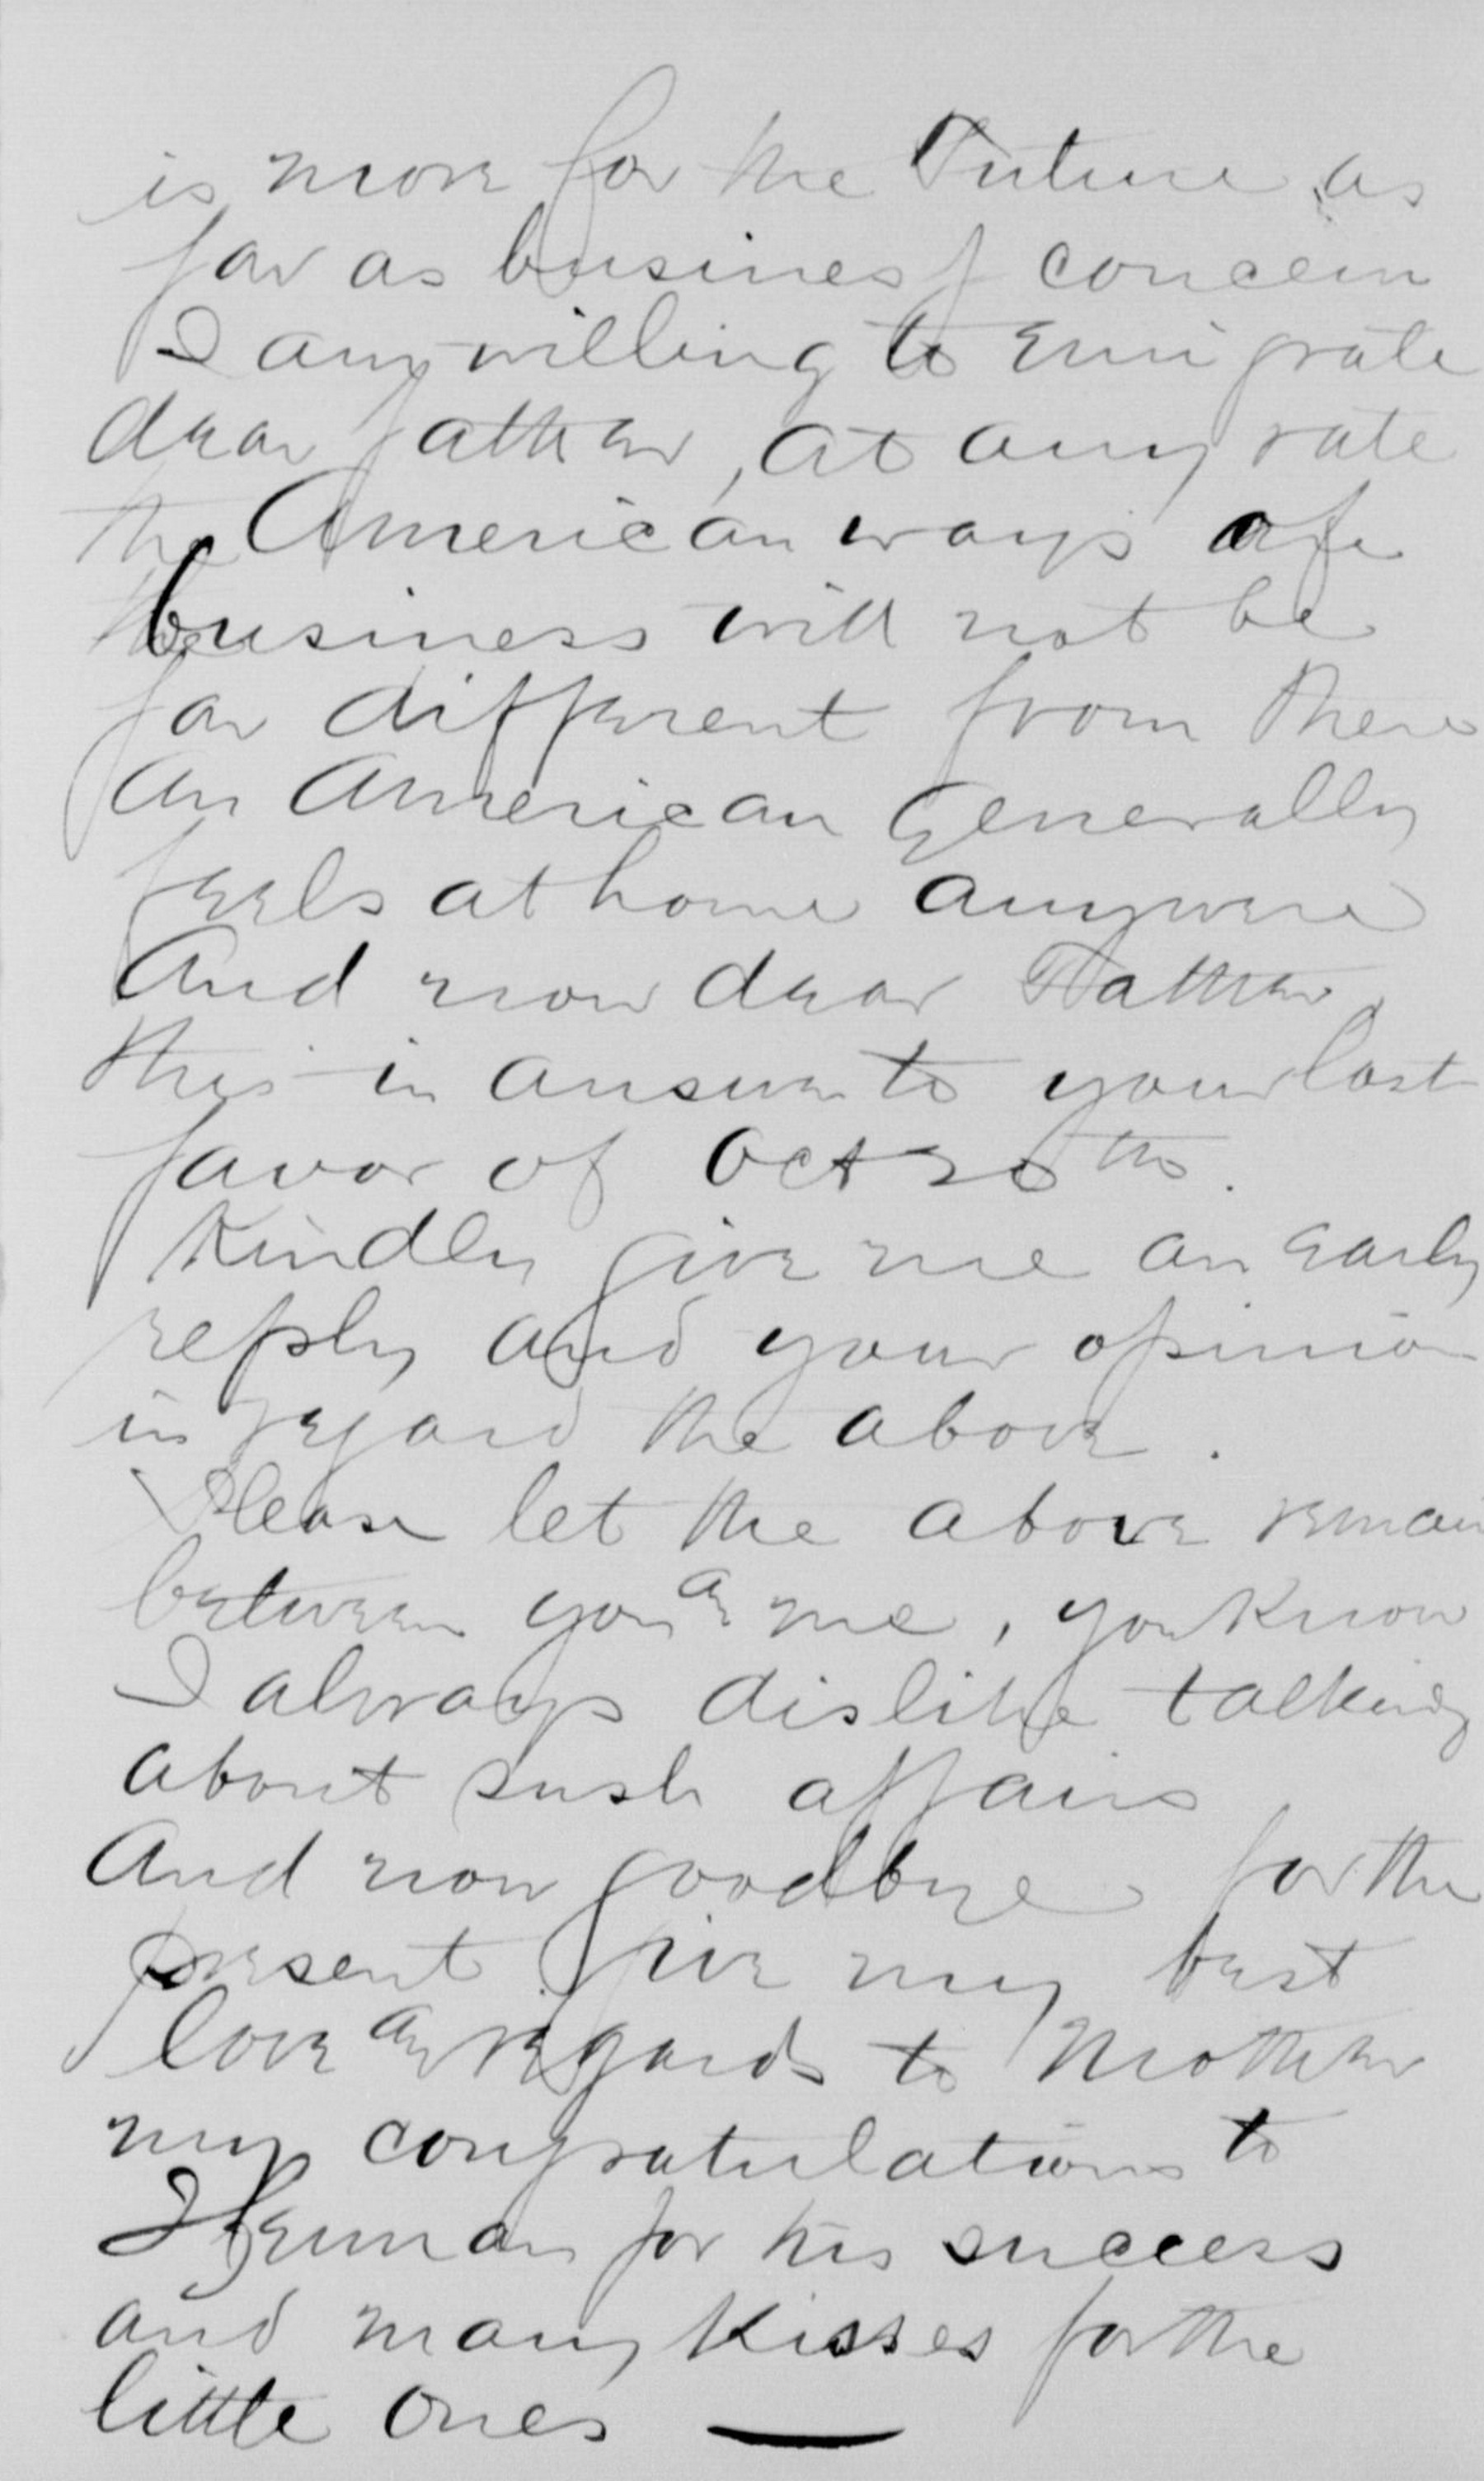 is more for the Future as
far as business concern
I am willing to emigrate
dear father, at any rate
the American ways of
business will not be
far different from there
An American Generally
feels at home anywere
And now dear Father
this in answer to your last
favor of Oct 20th.
Kindly give me an early
reply and your opinion
in regard the above.
Please let the above remain
between you & me, you Know
I always dislike talking
about sush affairs
And now goodbye for the
present. Give my best
love & regards to Mother
my congratulations to
Herman for his success
and many Kisses for the
little Ones —